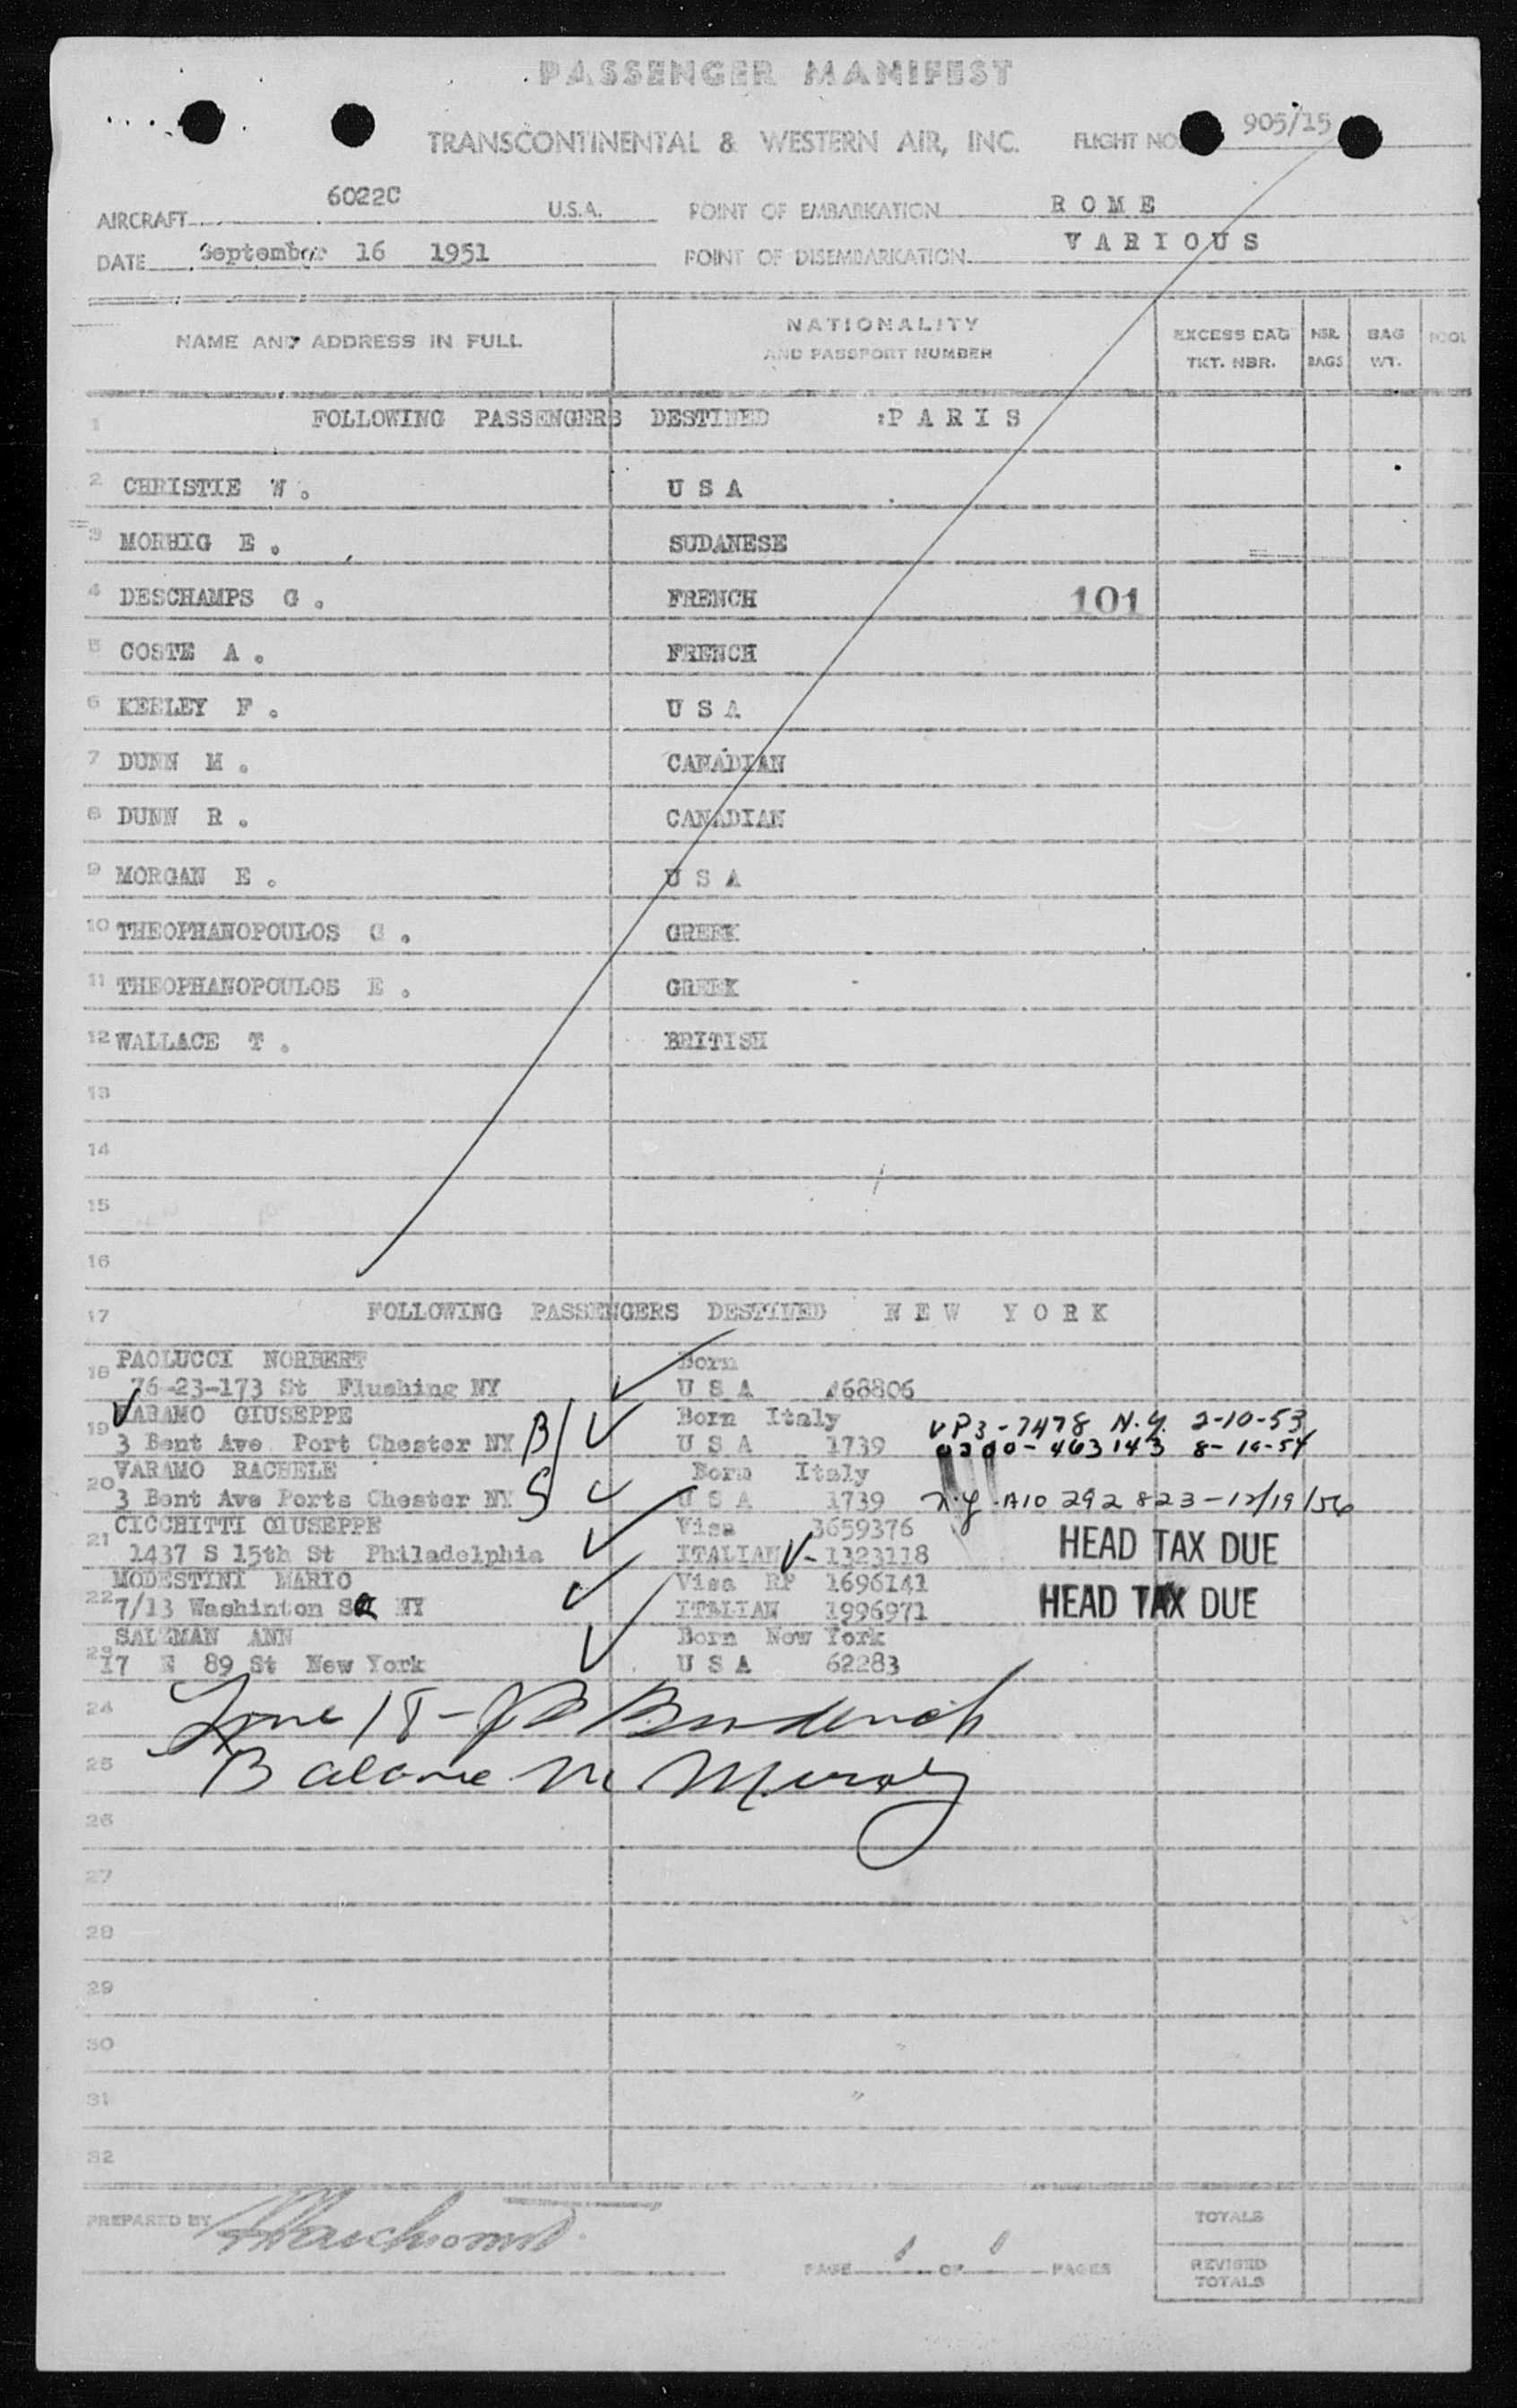 PASSENGER MANIFEST
TRANSCONTINENTAL & WESTERN AIR, INC. FLIGHT NO. 905/15
AIRCRAFT 6022C U.S.A. POINT OF EMBARKATION ROME
DATE September 16 1951 POINT OF DISEMBARKATION VARIOUS
NAME AND ADDRESS IN FULL NATIONALITY AND PASSPORT NUMBER EXCESS BAG TKT. NBR. NBR. BAGS BAG WT. POOL
1 FOLLOWING PASSENGERS DESTINED :PARIS
2 CHRISTIE W. USA
3 E. SUDANESE
4 DESCHAMPS G. FRENCH 101
5 COSTE A. FRENCH
6 F. USA
7 DUNN M. CANADIAN
8 DUNN R. CANADIAN
9 MORGAN E. USA
10 THEOPHANOPOULOS G. GREEK
11 THEOPHANOPOULOS E. GREEK
12 WALLACE T. BRITISH
13
14
15
16
17 FOLLOWING PASSENGERS DESTINED NEW YORK
18 PAOLUCCI NORBERT Born
76-23-173 St Flushing NY USA 468806
19 VARAMO GIUSEPPE Born Italy VP3-7478 N.Y. 2-10-53
3 Bent Ave Port Chester NY B/ USA 1739 0300-463143
20 VARAMO RACHELE Born Italy
3 Bent Ave Ports Chester NY S USA 1739 N.Y. A10 292 823-12/19/56
21 CICCHITTI GIUSEPPE Visa 3659376
1437 S 15th St Philadelphia ITALIAN 1323118 HEAD TAX DUE
22 MODESTINI MARIO Visa RP 1696141
7/13 Washinton Sq NY ITALIAN 1996971 HEAD TAX DUE
23 SALZMAN ANN Born New York
17 E 89 St New York USA 62283
24 Line 18-
25 Balance
26
27
28
29
30
31
32
PREPARED BY
TOTALS
PAGE 1 OF 1 PAGES
REVISED TOTALS